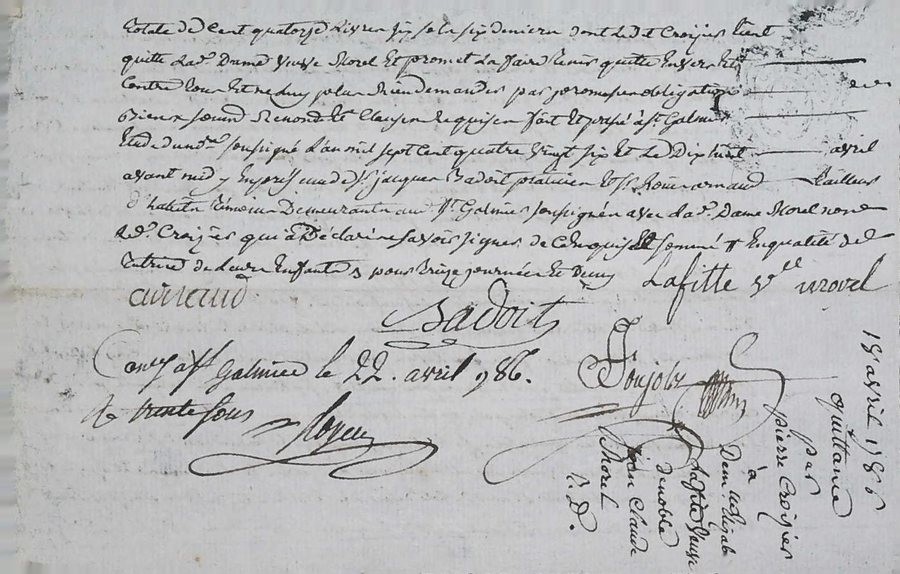 totale de Cent quatorze Livres six sols six deniers dont ledit Croizier tient
quitte lad. Dame veuve Morel Et promet la faire tenir quitte Envers Et
Contre tous Et ne luy plus Rien demander par promesse obligation des
Biens soumis Renond Et Clauses Requises fait Et passé à St. Galmier
Etude du no.re soussigné L'an mil sept Cent quatre vingt six Et Le Dix huit avril
avant midy En presence de Sr. jacques Badoit praticien Et Sr. armand tailleur
d'habits témoins Demeurants aud. St. Galmier soussignés avec lad. Dame Morel non
led. Croizier qui a Déclaré ne savoir signer de Ce Enquis Et sommé # En qualité de
tutrice de leurs Enfants pour treize journées Et demy
Lafitte Ve. morel
armand
Badoit
Con.lé à St Galmier le 22. avril 1786.
R. trente sous
Soujoly
18 avril 1786
quittance
par
pierre Croizier
à
Dem.
Lafitte veuve
de noble
jean Claude
Morel